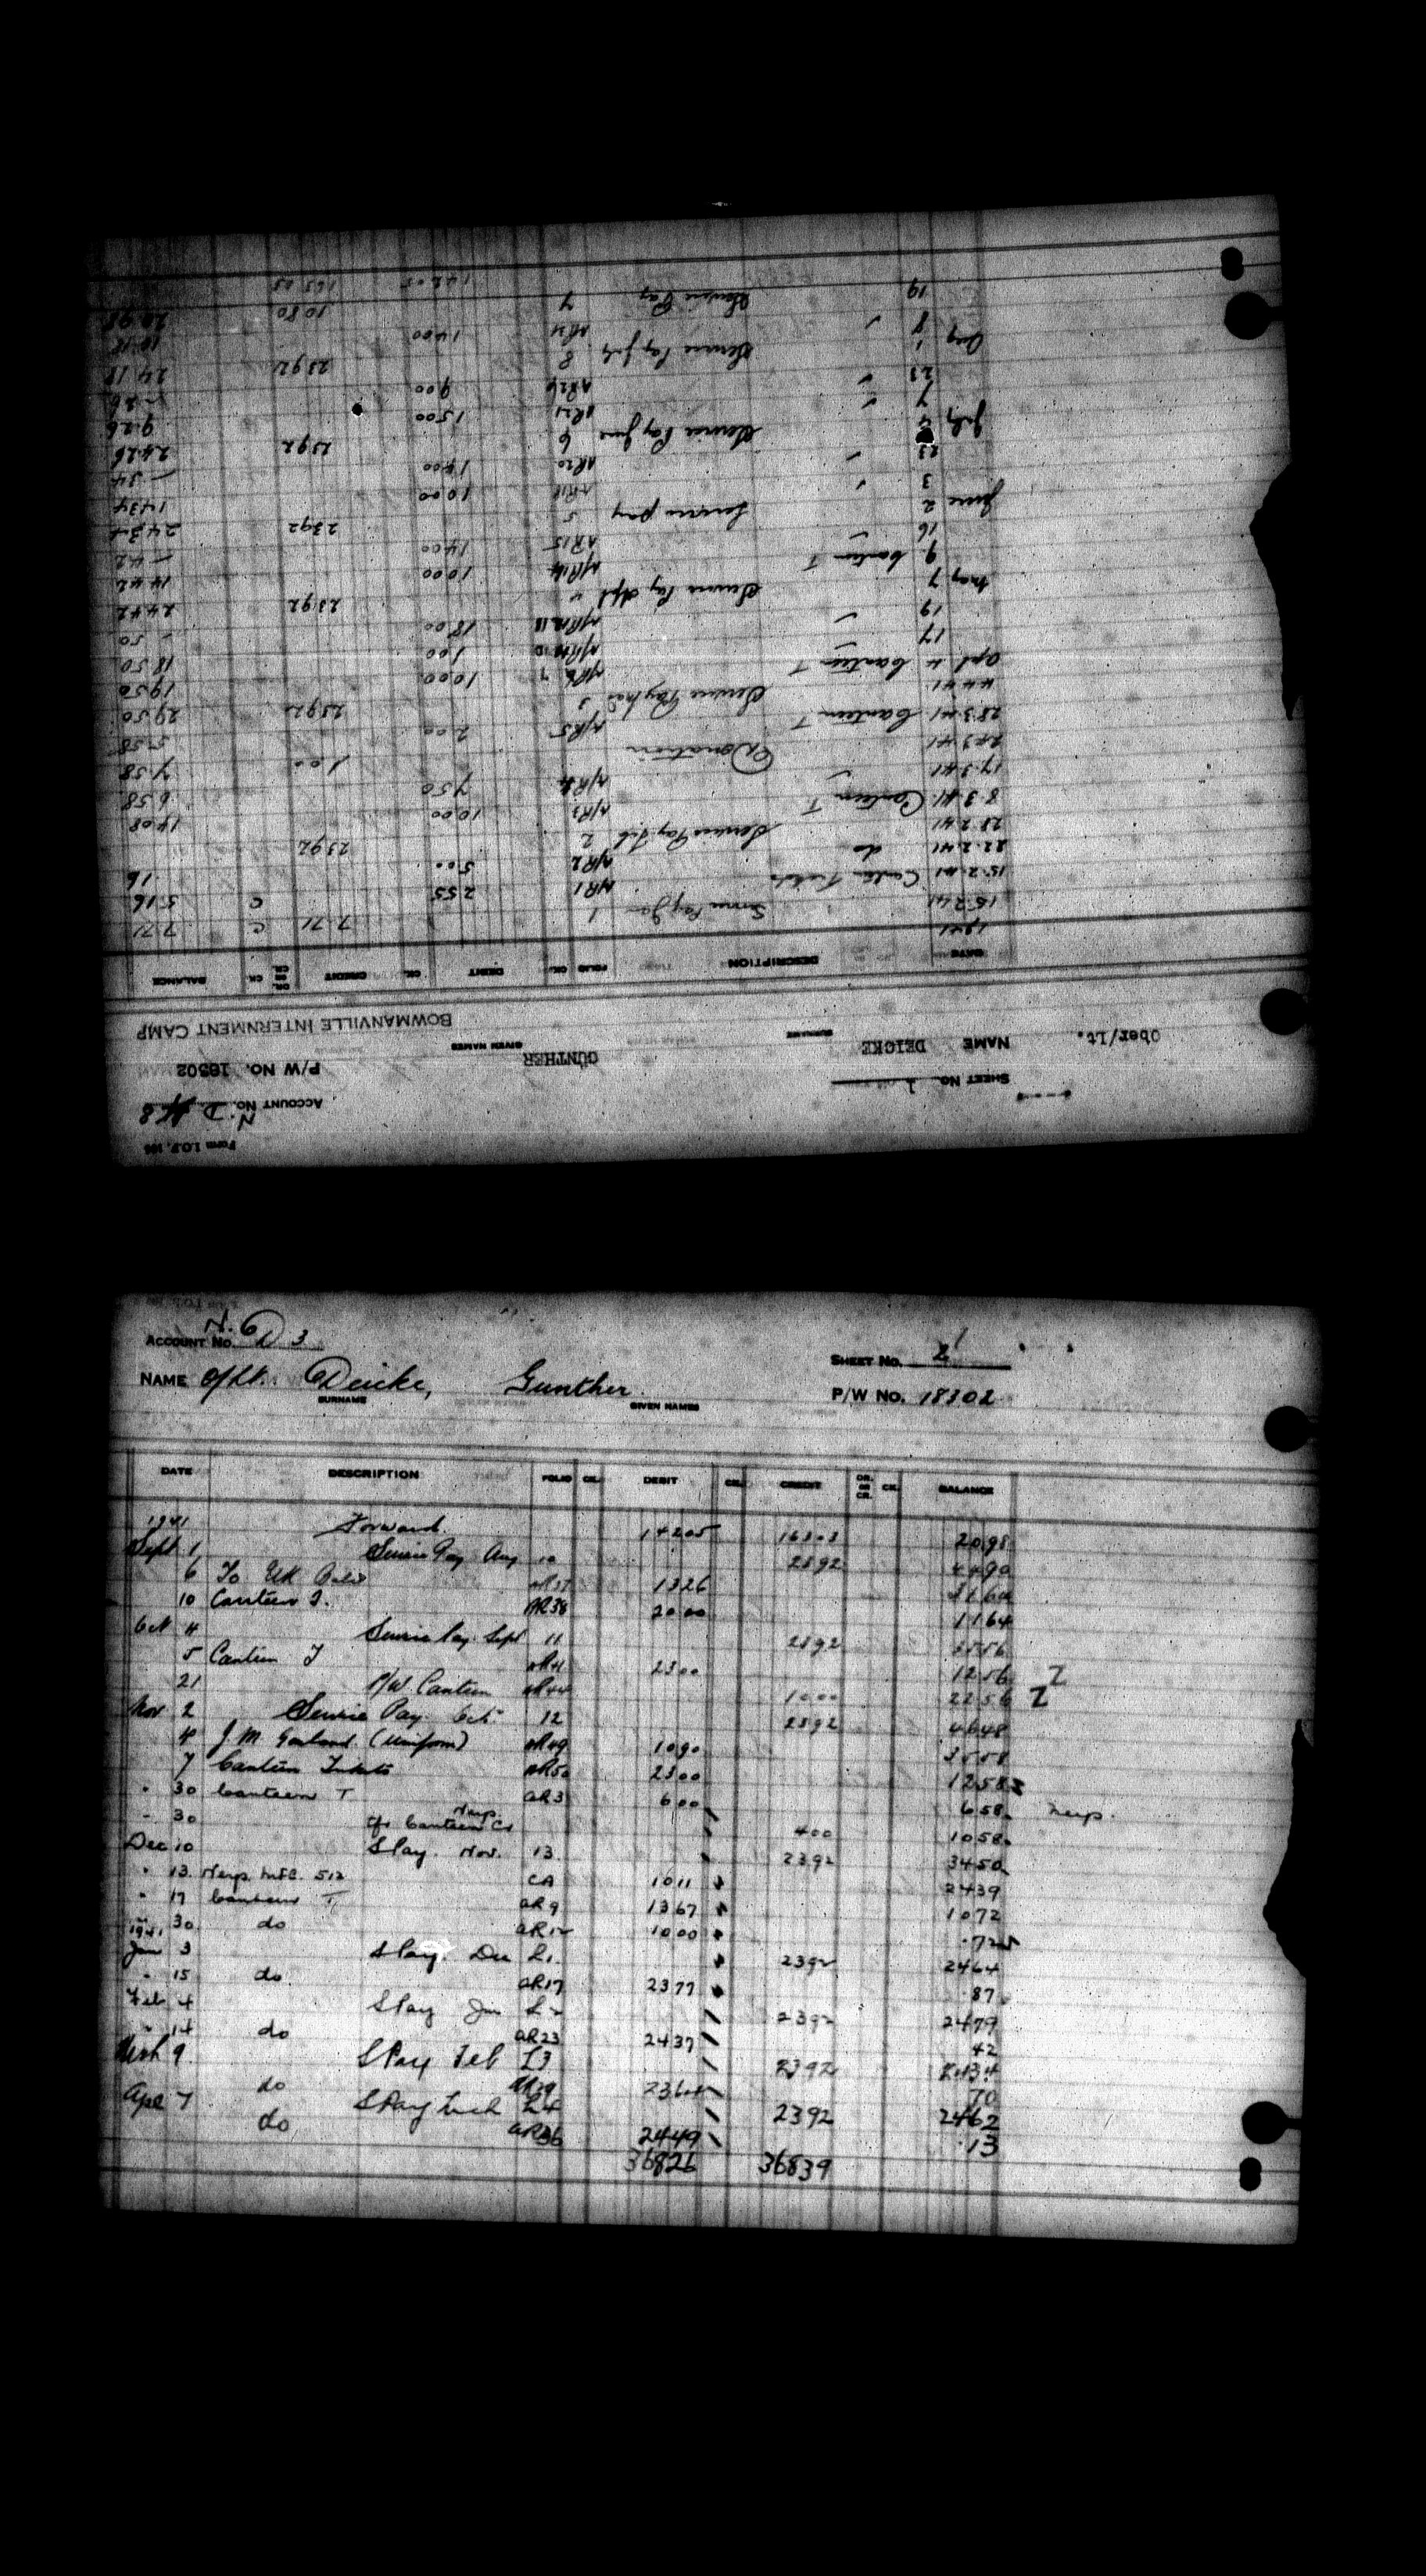 Form I.O.P. 106
ACCOUNT No. N. D. 3
SHEET No. 1
P/W NO. 18302
Ober/Lt. NAME DEICKE GÜNTHER
SURNAME GIVEN NAMES
BOWMANVILLE INTERNMENT CAMP
DATE DESCRIPTION FOLIO CK. DEBIT CK. CREDIT DR. OR CR. CK. BALANCE
1941
15.2.41 Service Pay Jan 1 7.71 C 7.71
15.2.41 Canteen Tickets A/R1 2 55 C 5.16
22.2.41 do A/R2 5 00 16
28.2.41 Service Pay Feb 2 23 92 14 08
8.3.41 Canteen T A/R3 10 00 6 58
17.3.41 A/R4 7 50 7 58
24.3.41 Donation 1 00 5 58
28.3.41 Canteen T A/R5 2 00 29 50
4.4.41 Service Pay Mar 3 23 92 19 50
Apl 4 Canteen T A/R6 10 00 18 50
17 1 00 50
19 18 00 24 42
May 7 Service Pay Apl 4 23 92 14 42
9 Canteen T A/R14 10 00 42
16 AR15 14 00 24 34
June 2 Service pay 5 23 92 14 34
3 AR18 10 00 34
23 AR20 14 00 24 26
July 4 Service Pay June 6 23 92 9.26
7 AR21 15 00 26
23 AR26 9 00 24 18
Aug 1 Service Pay July 8 23 92 10.18
8 14 00 20 98
19 Service Pay 7 10 80
142 05 163 03
ACCOUNT No. N. D 3
SHEET No. 2
NAME O/Lt. Deicke, Gunther.
SURNAME GIVEN NAMES
P/W No. 18302
DATE DESCRIPTION FOLIO CK. DEBIT CK. CREDIT DR. OR CR. CK. BALANCE
1941 Forward. 142 05 163 03 20 98
Sept 1 Service Pay Aug 10 23 92 44 90
6 To UK 13 26 31 64
10 Canteen T. AR38 20 00 11 64
Oct 4 Service Pay Sept 11 23 92 35 56
5 Canteen T AR41 23 00 12 56 Z
21 P/W Canteen AR44 10 00 22 56 Z
Nov 2 Service Pay Oct 12 23 92 46 48
4 J M Garland (Uniform) AR49 10 90 35 58
7 Canteen Tickets AR50 23 00 12 58
" 30 Canteen T AR3 6 00 6 58
" 30 Canteen 4 00 10 58
Dec 10 S Pay. Nov. 13 23 92 34 50
" 13 512 CA 10 11 24 39
" 17 Canteen T AR9 13 67 10 72
" 30 do AR12 10 00 .72
1941 Jan 3 S Pay. Dec L1. 23 92 24 64
" 15 do. AR17 23 77 87
Feb 4 S Pay Jan L2 23 92 24 79
" 14 do AR23 24 37 42
Mch 9 S Pay Feb L3 23 92 24 34
do AR29 23 64 70
Apl 7 S Pay Mch L4 23 92 24 62
do AR36 24 49 .13
368 26 368 39